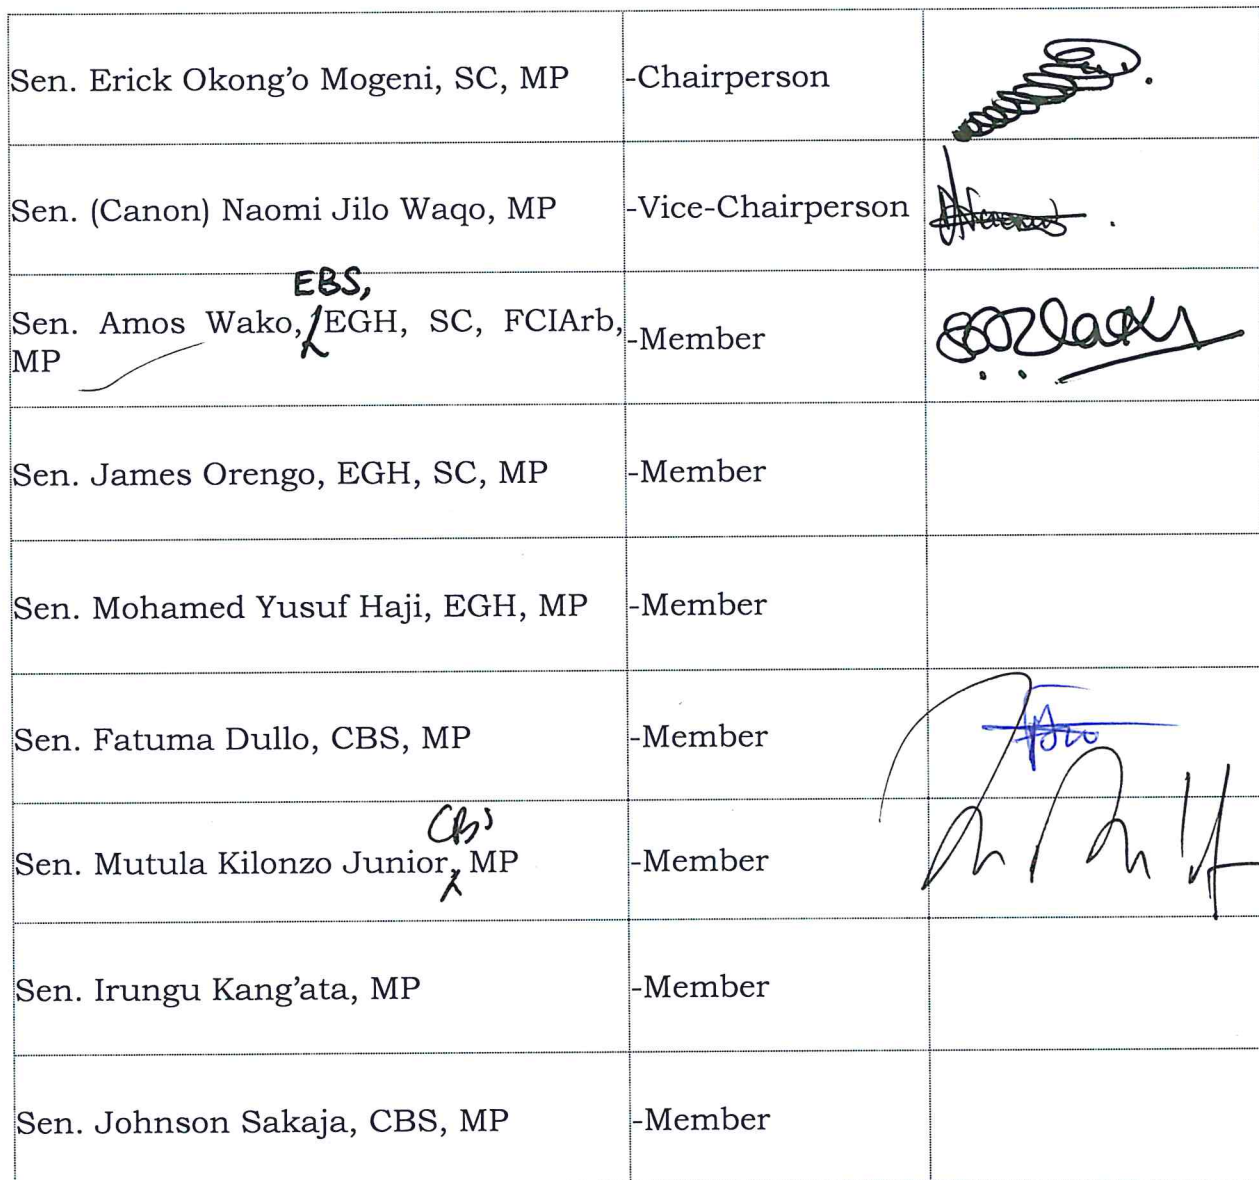 Sen. Erick Okong’o Mogeni, SC, MP -Chairperson
Sen. (Canon) Naomi Jilo Waqo, MP -Vice-Chairperson
EBS,
Sen. Amos Wako, EGH, SC, FCIArb, -Member
MP
Sen. James Orengo, EGH, SC, MP -Member
Sen. Mohamed Yusuf Haji, EGH, MP -Member
Sen. Fatuma Dullo, CBS, MP -Member
CBS
Sen. Mutula Kilonzo Junior, MP -Member
Sen. Irungu Kang’ata, MP -Member
Sen. Johnson Sakaja, CBS, MP -Member